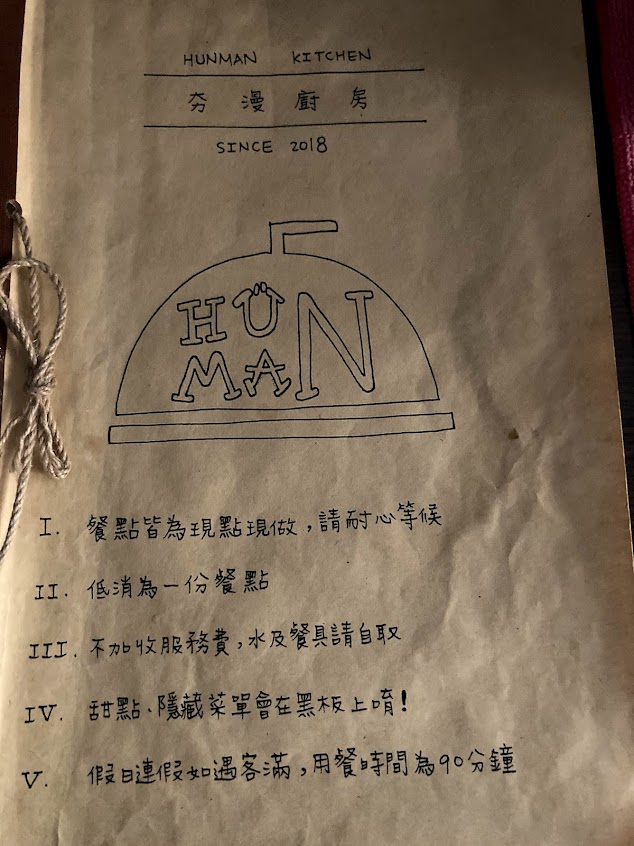 HUNMAN KITCHEN
夯漫廚房
SINCE 2018
HÜN
MAN
I. 餐點皆為現點現做，請耐心等候
II. 低消為一份餐點
III. 不加收服務費，水及餐具請自取
IV. 甜點、隱藏菜單會在黑板上唷！
V. 假日連假如遇客滿，用餐時間為90分鐘